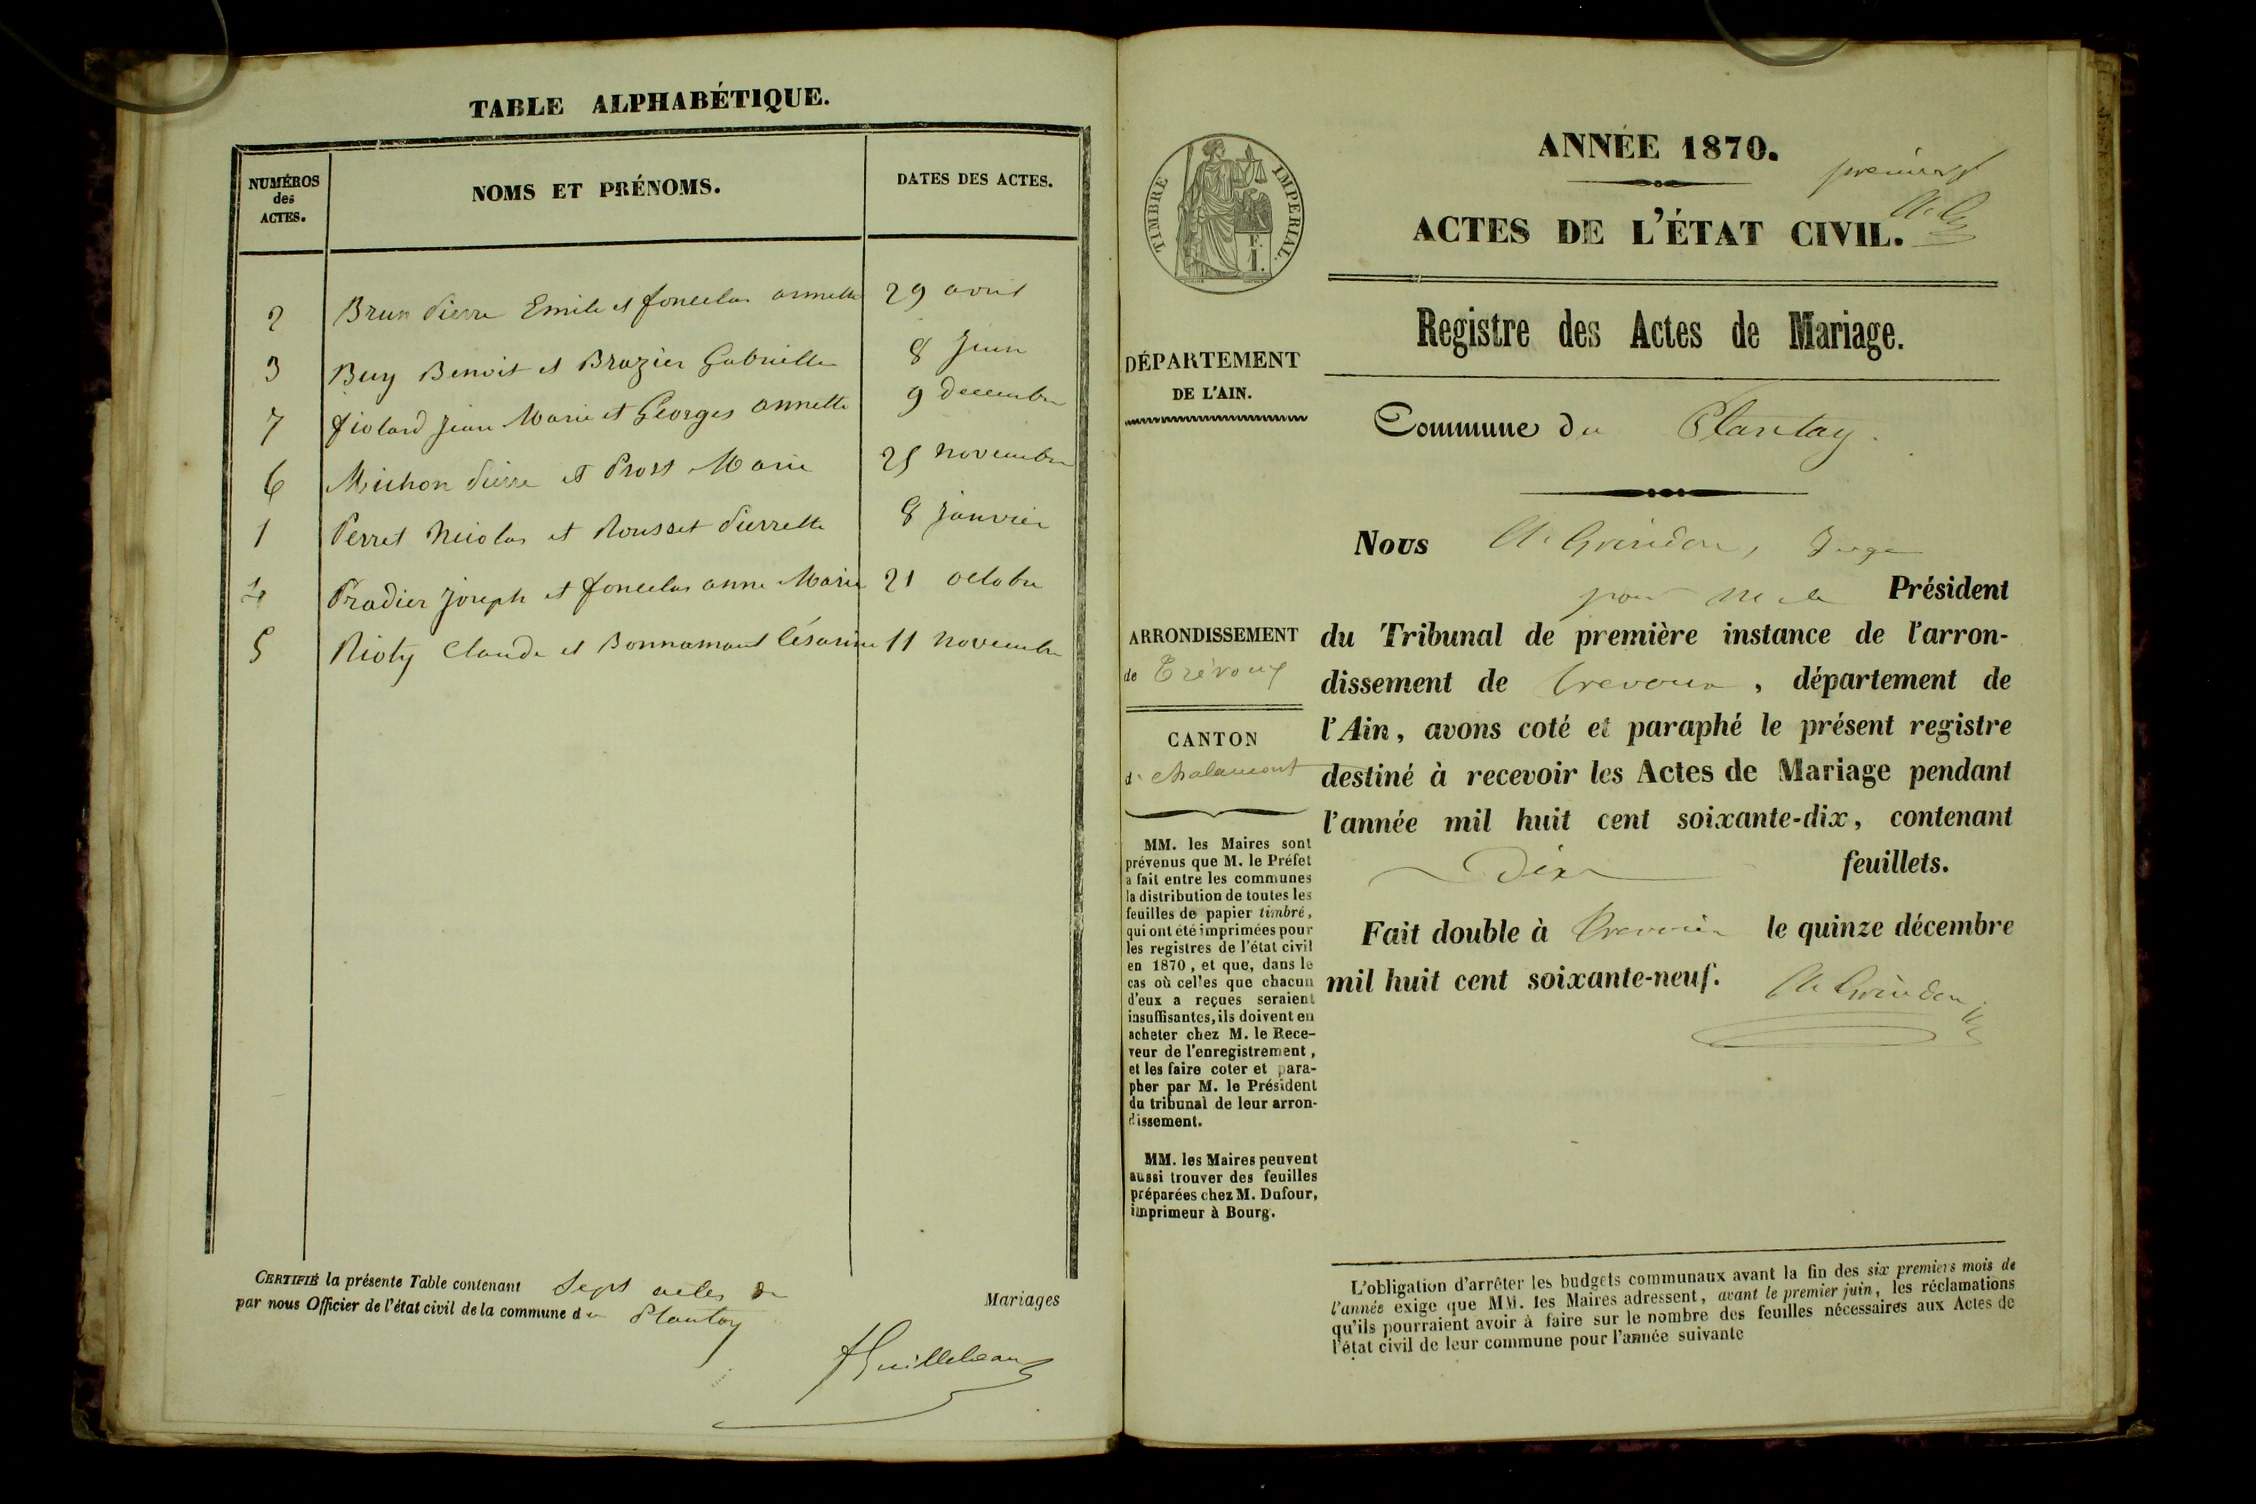 TABLE ALPHABÉTIQUE.
NUMÉROS
des
ACTES.
NOMS ET PRÉNOMS.
DATES DES ACTES.
2 Brun Pierre Emile et annette 29 avril
3 Buy Benoit et Brazier Gabrielle 8 Juin
7 Fiolard Jean Marie et Georges annette 9 decembre
6 Michon Pierre et Prost Marie 25 novembre
1 Perret Nicolas et Rousset Pierrette 8 janvier
4 Pradier Joseph et anne Marie 21 octobre
5 Rioty Claude et Bonnamant Césarine 11 novembre
CERTIFIÉ la présente Table contenant Sept actes de Mariages
par nous Officier de l'état civil de la commune du Plantay
ANNÉE 1870.
premier
ACTES DE L'ÉTAT CIVIL.
TIMBRE IMPERIAL.
F.
1.
Registre des Actes de Mariage.
DÉPARTEMENT
DE L'AIN.
Commune du Plantay.
Nous Grindon, Juge
pour M. le Président
du Tribunal de première instance de l'arron-
dissement de Trevoux, département de
l'Ain, avons coté et paraphé le présent registre
destiné à recevoir les Actes de Mariage pendant
l'année mil huit cent soixante-dix, contenant
Dix feuillets.
Fait double à Trevoux le quinze décembre
mil huit cent soixante-neuf.
Grindon
ARRONDISSEMENT
de Trévoux
CANTON
de chalamont
MM. les Maires sont
prévenus que M. le Préfet
a fait entre les communes
la distribution de toutes les
feuilles de papier timbré,
qui ont été imprimées pour
les registres de l'état civil
en 1870, et que, dans le
cas où celles que chacun
d'eux a reçues seraient
insuffisantes, ils doivent en
acheter chez M. le Rece-
veur de l'enregistrement,
et les faire coter et para-
pher par M. le Président
du tribunal de leur arron-
dissement.
MM. les Maires peuvent
aussi trouver des feuilles
préparées chez M. Dufour,
imprimeur à Bourg.
L'obligation d'arrêter les budgets communaux avant la fin des six premiers mois de
l'année exige que MM. les Maires adressent, avant le premier juin, les réclamations
qu'ils pourraient avoir à faire sur le nombre des feuilles nécessaires aux Actes de
l'état civil de leur commune pour l'année suivante